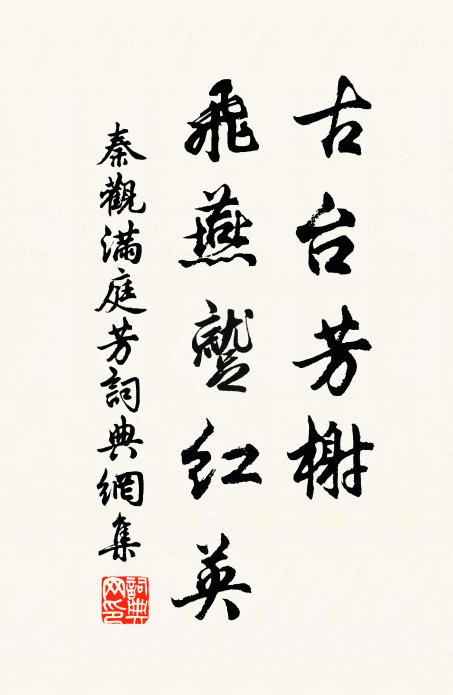 古台芳榭
飛燕蹵紅英
秦觀滿庭芳詞典網集
詞典
网印